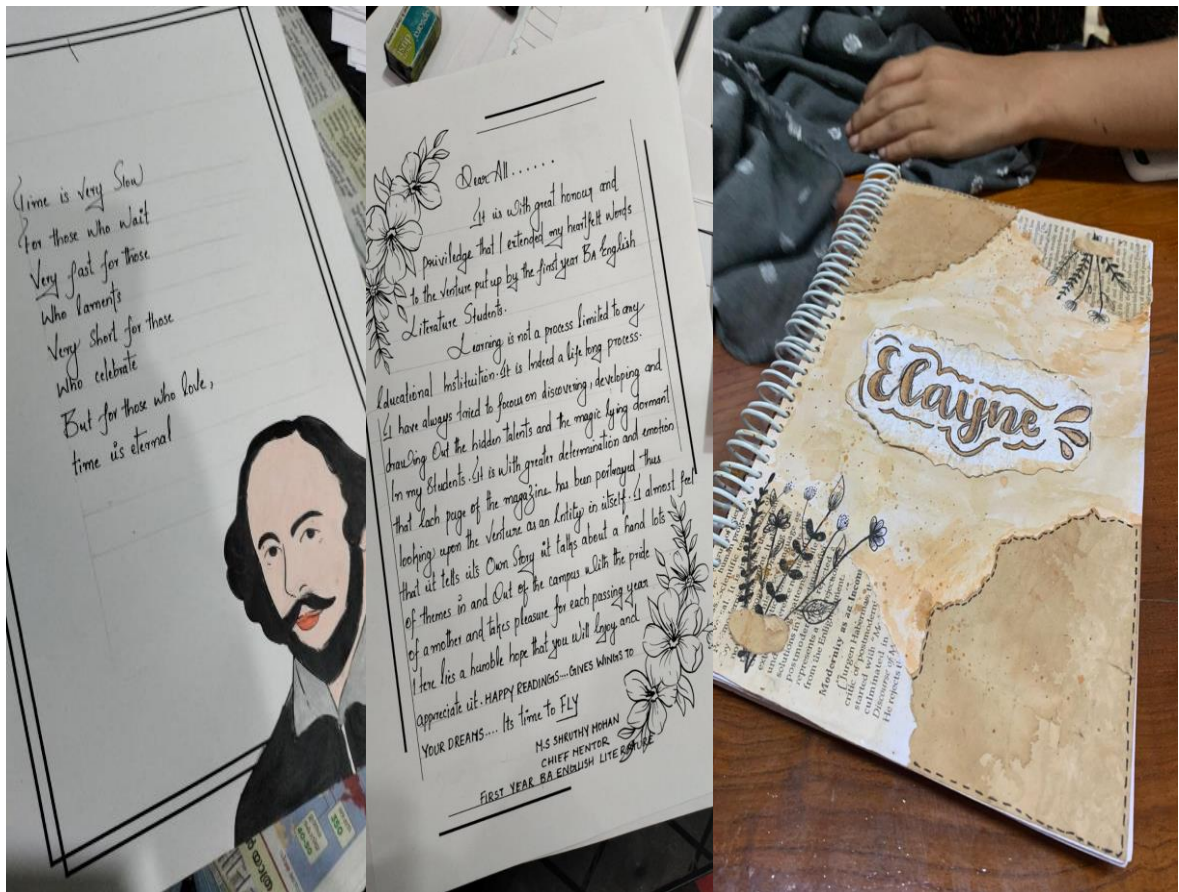 Time is very Slow
For those who wait
Very fast for those
Who Laments
Very Short for those
Who celebrate
But for those who Love,
time is eternal
Dear All......
It is with great honour and
priviledge that I extended my heartfelt words
to the venture put up by the first year BA English
Literature Students.
Learning is not a process limited to any
Educational Instituition. It is Indeed a life long process.
I have always tried to focus on discovering, developing and
drawing Out the hidden talents and the magic lying dormant
In my Students. It is with greater determination and emotion
that Each page of the magazine has been portrayed thus
looking upon the venture as an Entity in itself. I almost feel
that it tells its Own Story it talks about a hand lots
of themes in and Out of the campus with the pride
of a mother and takes pleasure for each passing year
Here lies a humble hope that you will Enjoy and
appreciate it. HAPPY READINGS.... GIVES WINGS TO
YOUR DREAMS.... Its time to FLY
M.S SHRUTHY MOHAN
CHIEF MENTOR
FIRST YEAR BA ENGLISH LITERATURE
Elayne
solutions in
postmodern
represents a
from the Enlig
Modernity as an Incom
Jurgen Habermas
critic of postmoderni
started with
culminated in
Discourse of M
He rejects